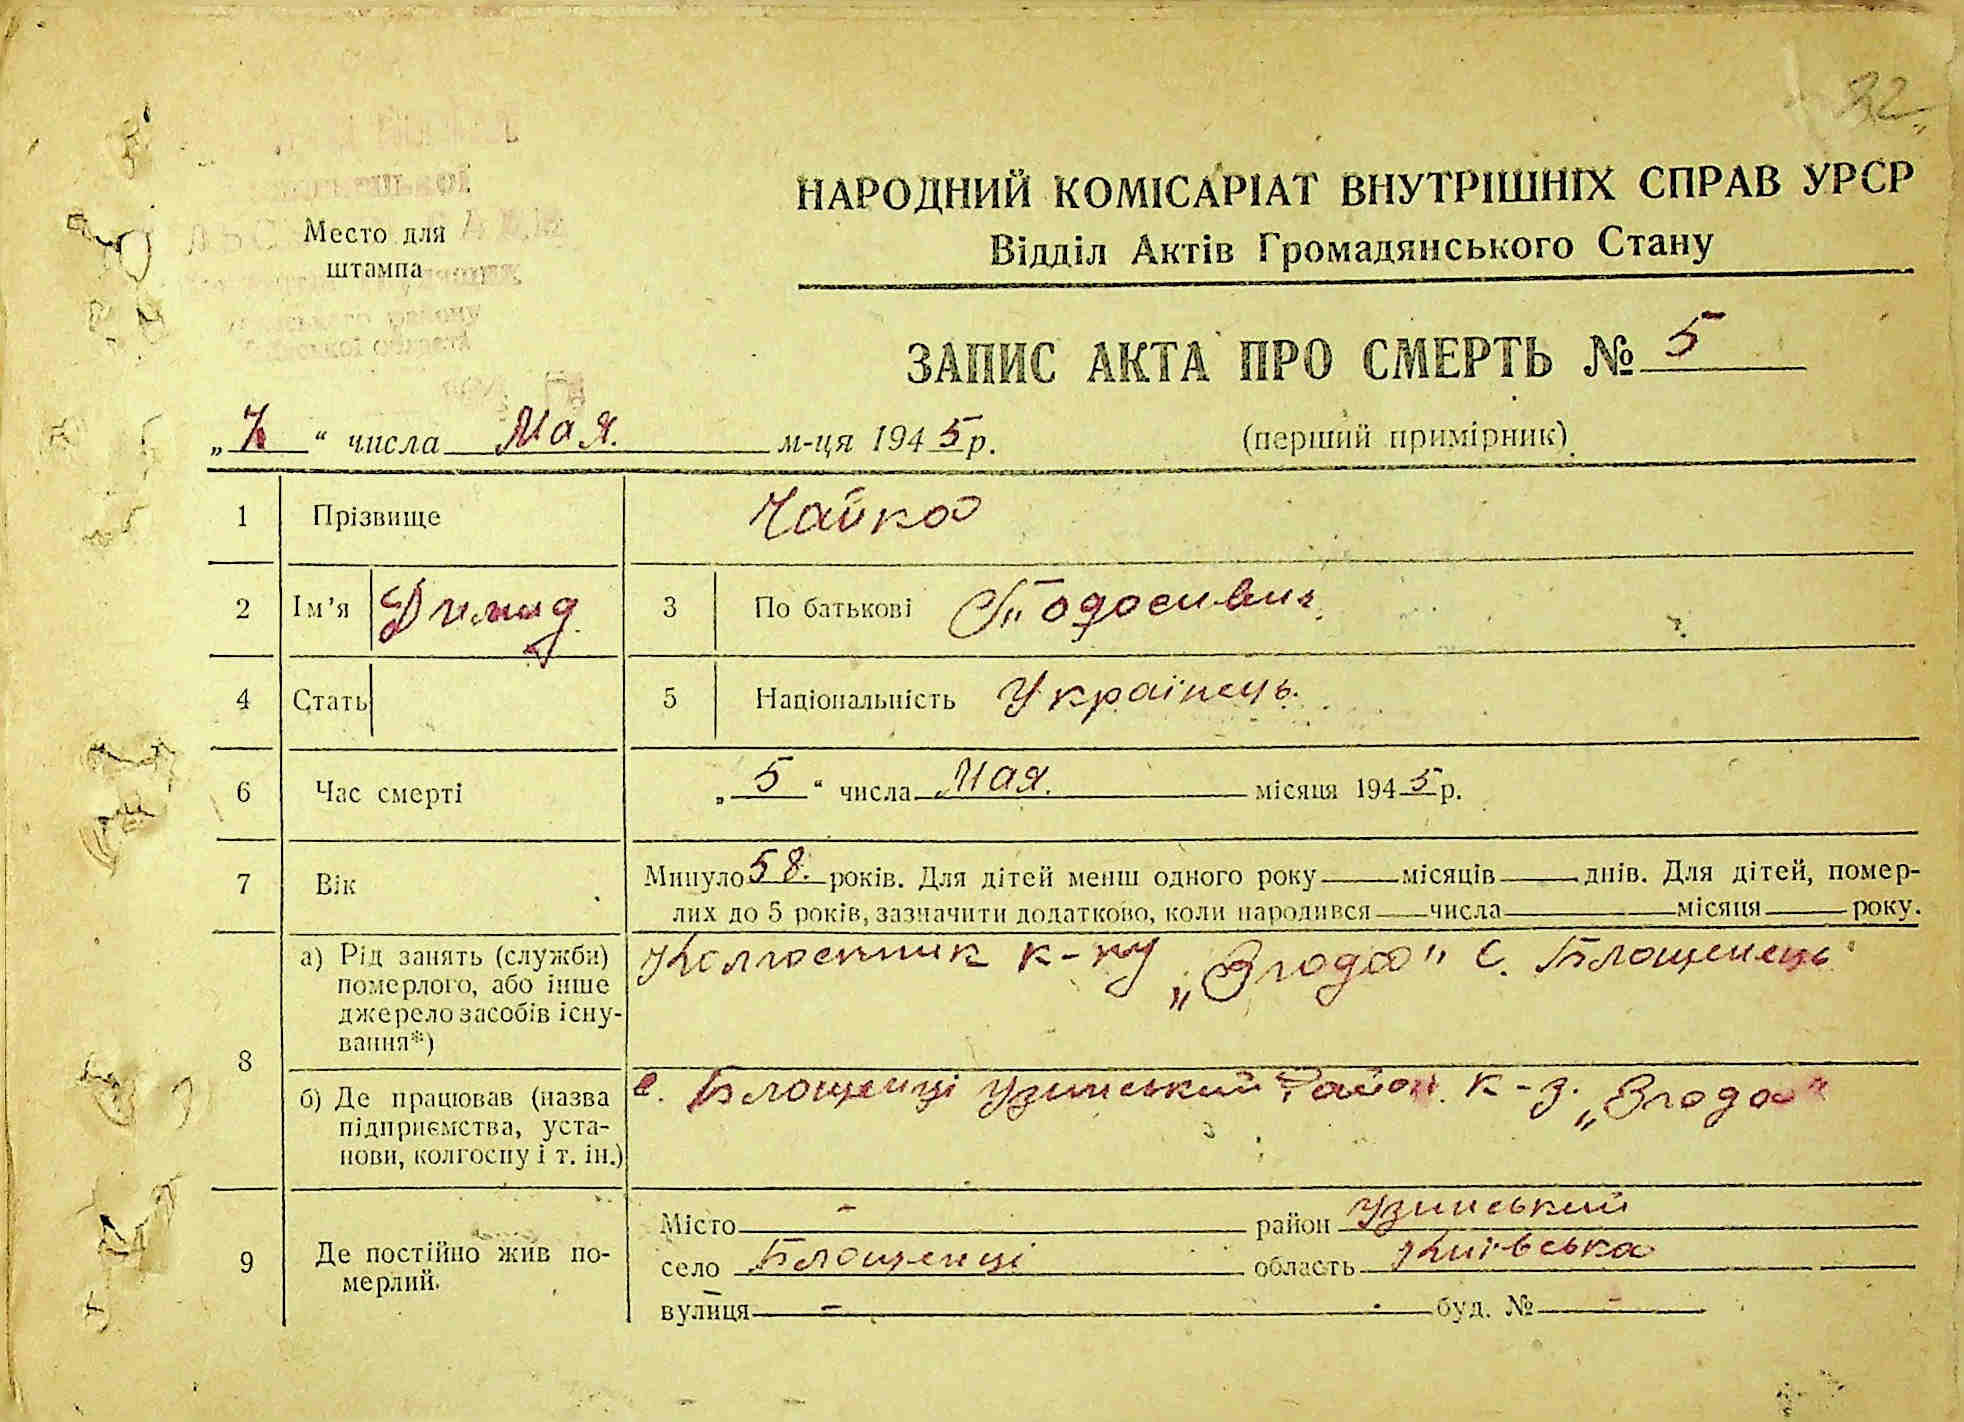 32
НАРОДНИЙ КОМІСАРІАТ ВНУТРІШНІХ СПРАВ УРСР
Відділ Актів Громадянського Стану
Место для
штампа
ЗАПИС АКТА ПРО СМЕРТЬ № 5
„7“ числа Мая. м-ця 1945 р.
(перший примірник)
1 Прізвище Чайка
2 Ім’я Димид 3 По батькові Тодосивич
4 Стать 5 Національність Українець.
6 Час смерті „5“ числа Мая. місяця 1945 р.
7 Вік Минуло 58. років. Для дітей менш одного року місяців днів. Для дітей, помер-
лих до 5 років, зазначити додатково, коли народився числа місяця року.
8 а) Рід занять (служби) померлого, або інше джерело засобів існу-вання*) Колгоспник к-пу „Згода“ с. Блощенець
б) Де працював (назва підприємства, уста-нови, колгоспу і т. ін.) с. Блощенці Узинський район. к-з. „Згода“
9 Де постійно жив по-мерлий.
Місто - район Узинський
село Блощенці область Київська
вулиця - буд. № -